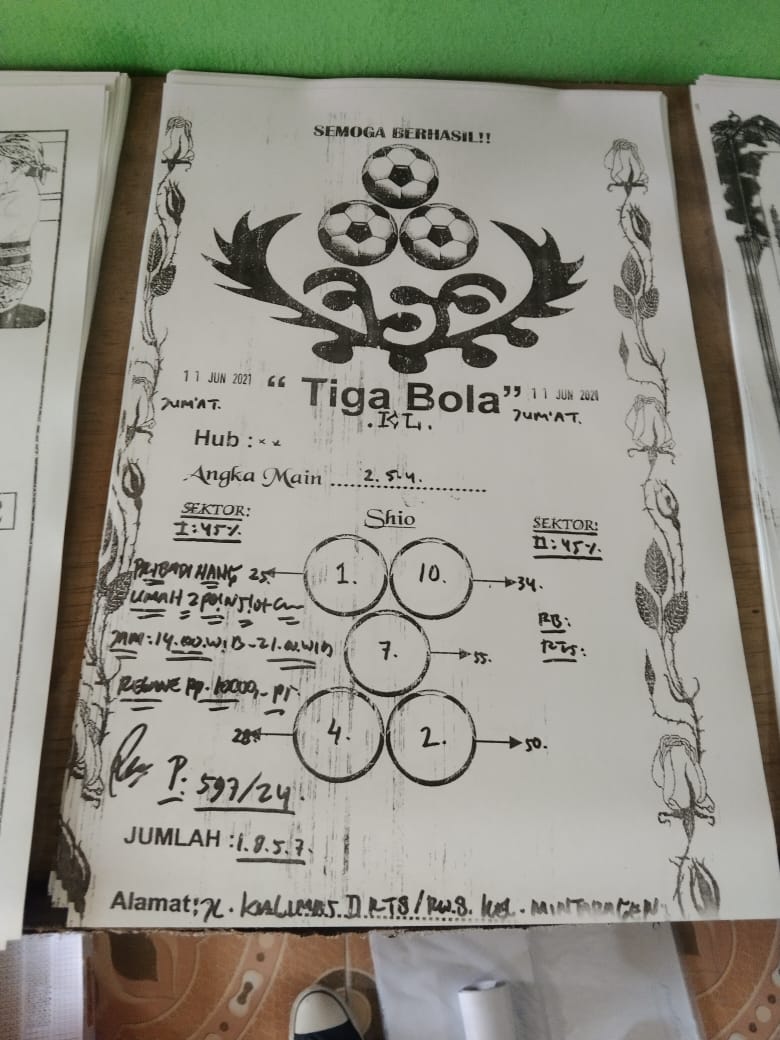 SEMOGA BERHASIL!!
11 JUN 2021 "Tiga Bola" 11 JUN 2021
JUM'AT. .KL. JUM'AT.
Hub : x x
Angka Main ...2.5.4...
SEKTOR: Shio SEKTOR:
I:45% II:45%
PRIBADI 25 1. 10. 34.
UMAH 2
RB:
JAM:14.00.WIB-21.00.WIB 7. 55.
RTS:
Rp.10000,-
28 4. 2. 50.
P: 597/24.
JUMLAH :1.8.5.7.
Alamat: JL. KALIMAS. II RT8/RW.8. KEL. MINTARAGEN